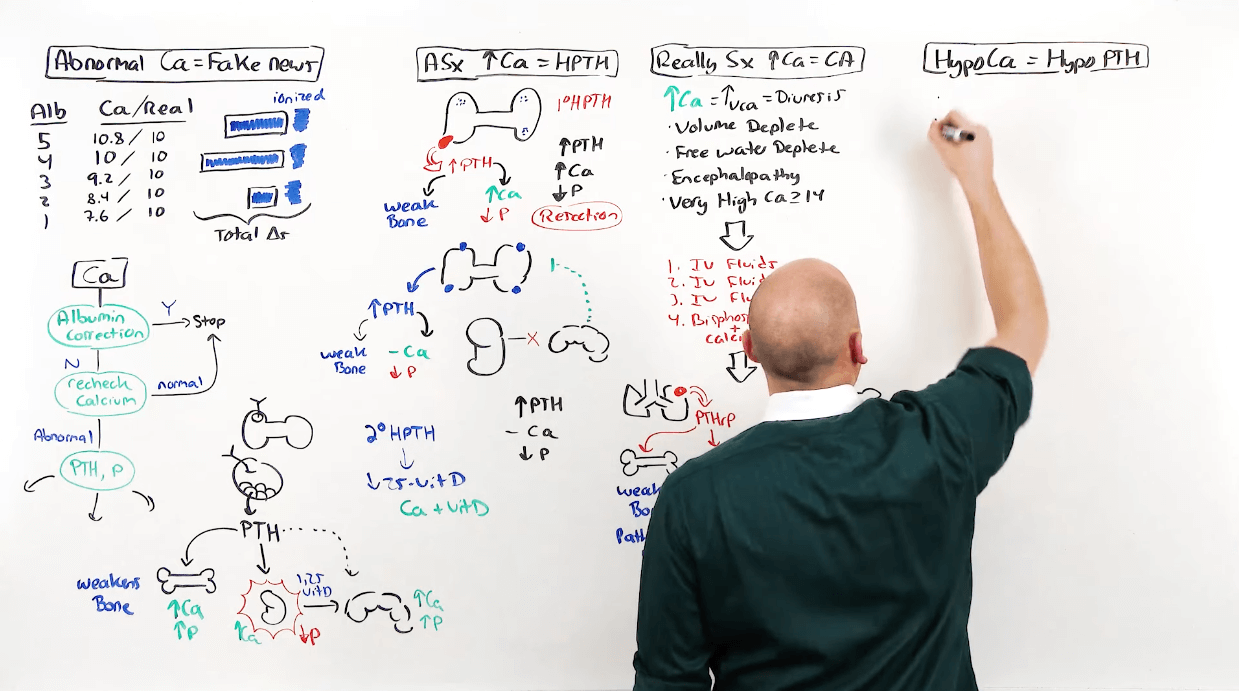 Abnormal Ca = Fake news
Alb Ca/Real ionized
5 10.8 / 10
4 10 / 10
3 9.2 / 10
2 8.4 / 10
1 7.6 / 10
Total Δs
Ca
Albumin
Correction
Y
Stop
N
recheck
Calcium
normal
Abnormal
PTH, P
PTH
weakens
Bone
↑Ca
↑P
1,25
vitD
↑Ca
↓P
↑Ca
↑P
ASx ↑Ca = HPTH
1° HPTH
↑PTH
weak
Bone
↑Ca
↓P
↑PTH
↑Ca
↓P
Resection
↑PTH
weak
Bone
- Ca
↓P
X
2° HPTH
↓25-vitD
Ca + vitD
↑PTH
- Ca
↓P
Really Sx ↑Ca = CA
↑Ca = ↑UCa = Diuresis
· Volume Deplete
· Free water Deplete
· Encephalopathy
· Very High Ca ≥ 14
1. IV Fluids
2. IV Flui
3. IV Flu
4. Bisphos
+
calci
PTHrP
weak
Bo
Path
HypoCa = Hypo PTH